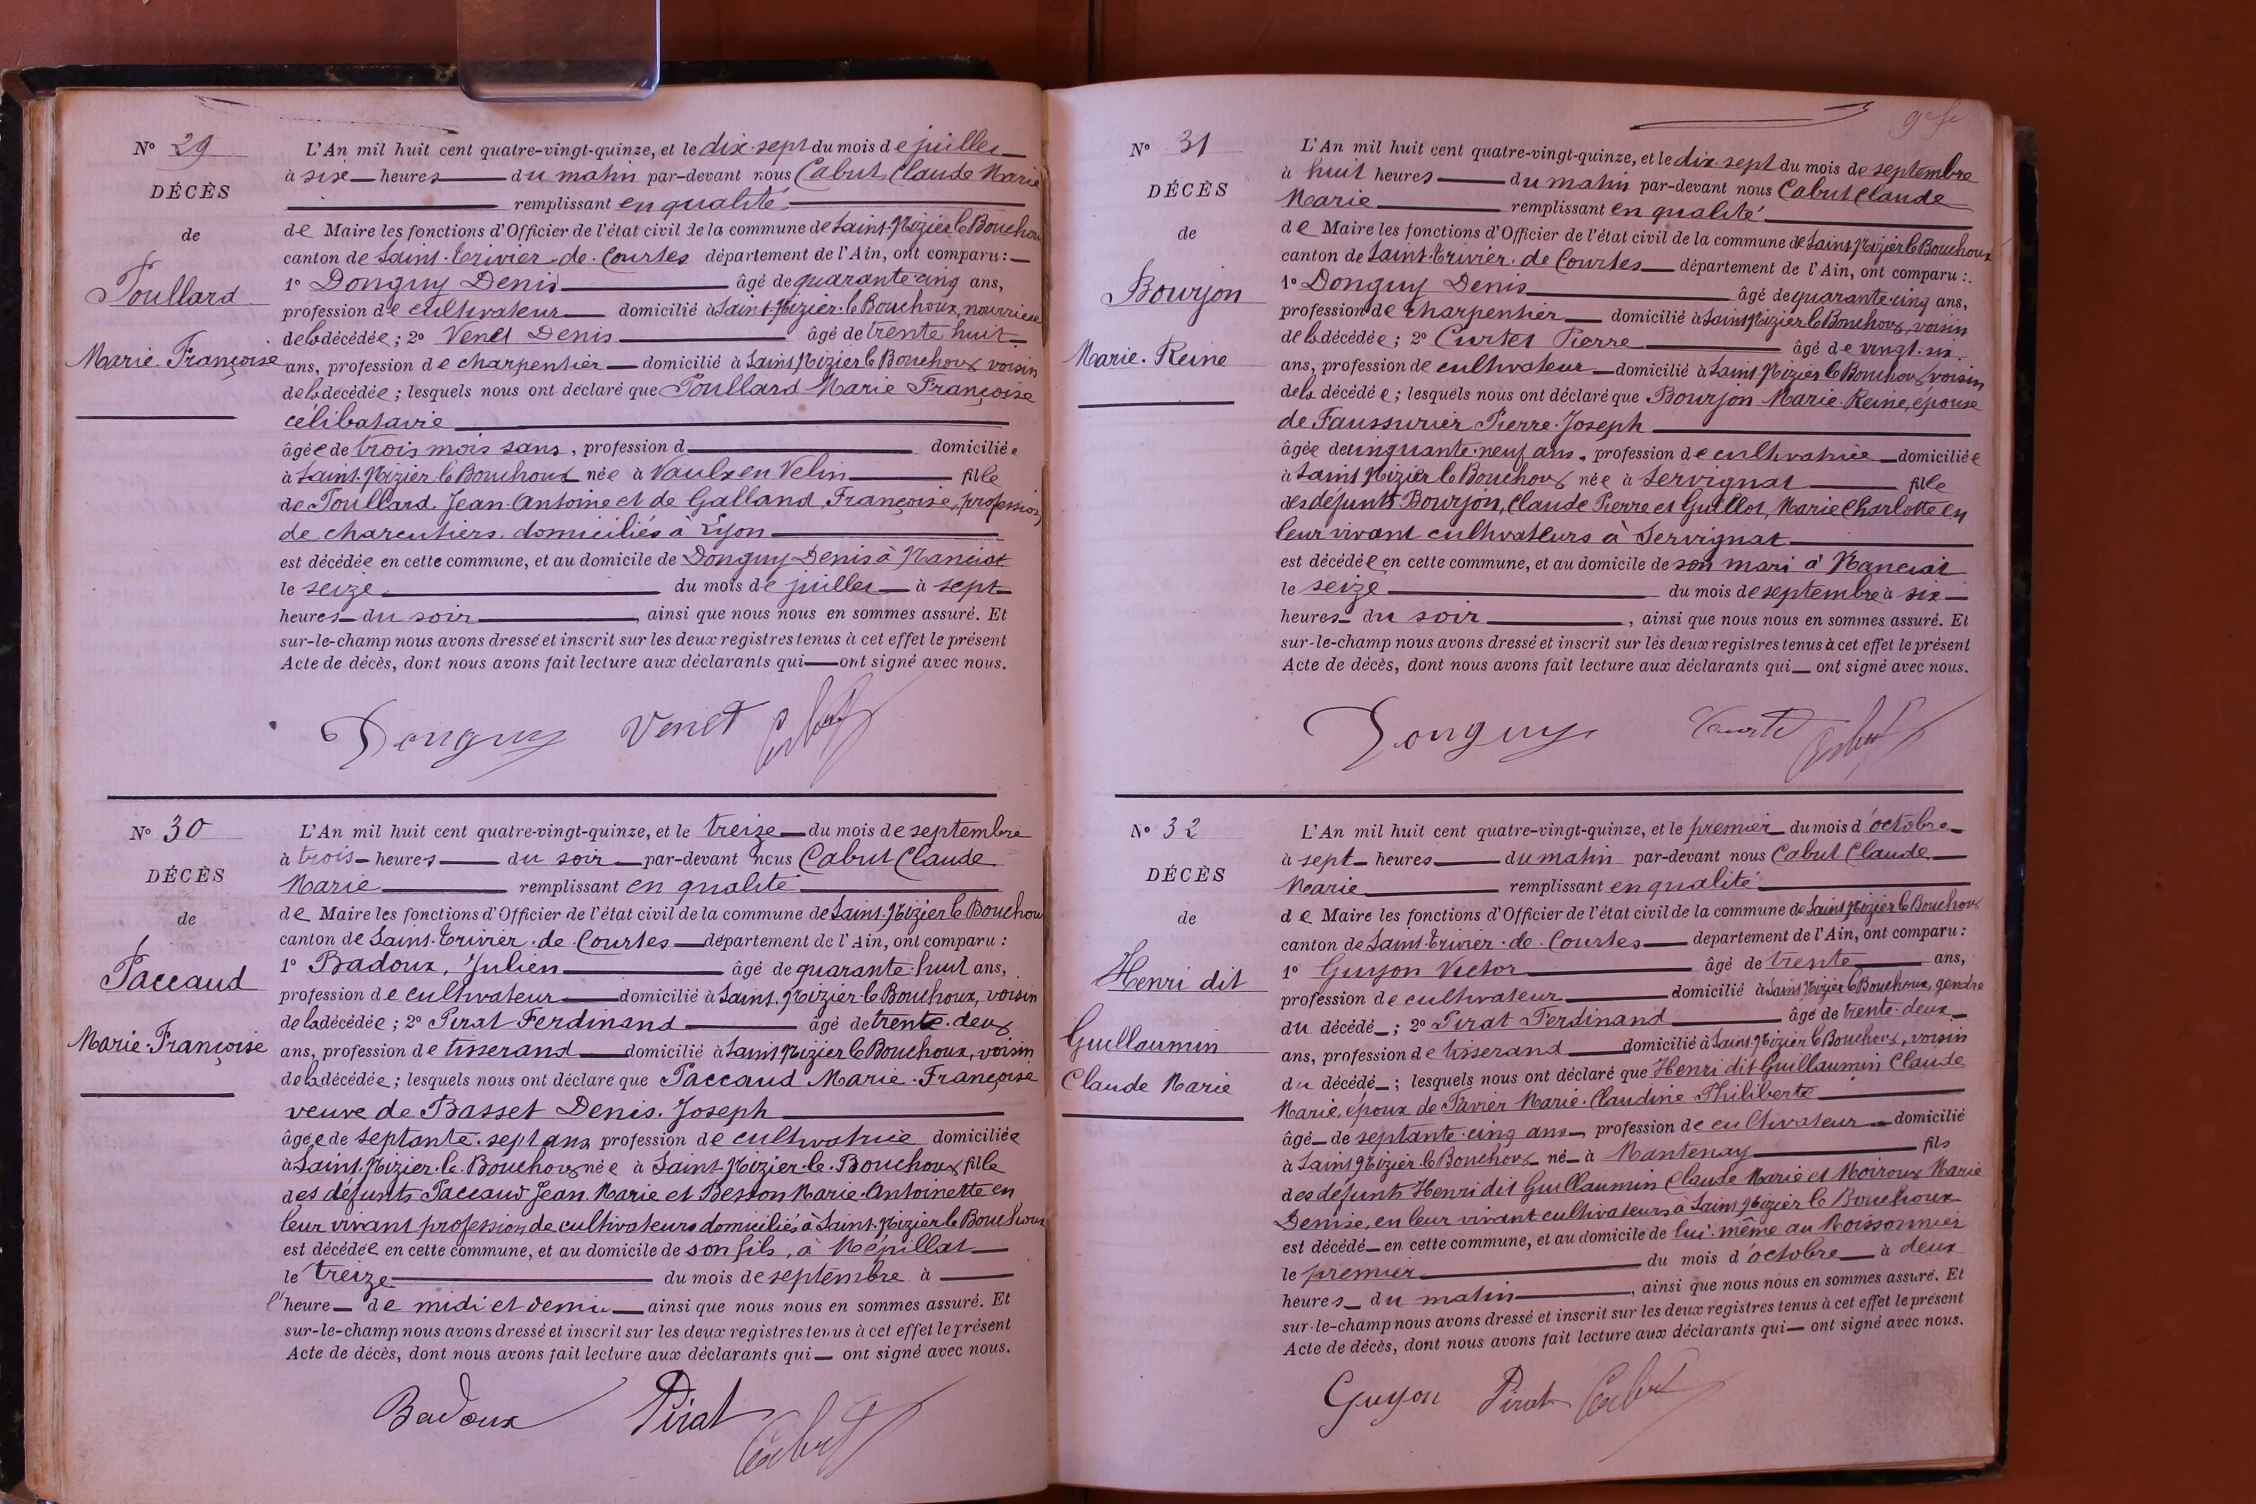 N° 29
DÉCÈS
de
Poullard
Marie Françoise
L'An mil huit cent quatre-vingt-quinze, et le dix-sept du mois de juillet
à six heures du matin par-devant nous Cabut Claude Marie
remplissant en qualité
de Maire les fonctions d'Officier de l'état civil de la commune de Saint-Nizier le Bouchoux
canton de Saint-Trivier-de-Courtes département de l'Ain, ont comparu :
1° Donguy Denis âgé de quarante-cinq ans,
profession de cultivateur domicilié à Saint-Nizier-le Bouchoux, nourricier
de la décédée ; 2° Venet Denis âgé de trente huit
ans, profession de charpentier domicilié à Saint Nizier le Bouchoux voisin
de la décédée ; lesquels nous ont déclaré que Poullard Marie Françoise
célibataire
âgée de trois mois sans, profession d domiciliée
à Saint-Nizier-le Bouchoux née à Vaulx en Velin fille
de Poullard Jean Antoine et de Galland Françoise, profession
de charcutiers domiciliés à Lyon
est décédée en cette commune, et au domicile de Donguy Denis à Nanciat
le seize du mois de juillet à sept
heures du soir, ainsi que nous nous en sommes assuré. Et
sur-le-champ nous avons dressé et inscrit sur les deux registres tenus à cet effet le présent
Acte de décès, dont nous avons fait lecture aux déclarants qui ont signé avec nous.
Donguy Venet Cabut
N° 30
DÉCÈS
de
Paccaud
Marie-Françoise
L'An mil huit cent quatre-vingt-quinze, et le treize du mois de septembre
à trois heures du soir par-devant nous Cabut Claude
Marie remplissant en qualité
de Maire les fonctions d'Officier de l'état civil de la commune de Saint-Nizier le Bouchoux
canton de Saint-Trivier-de-Courtes département de l'Ain, ont comparu :
1° Badoux, Julien âgé de quarante-huit ans,
profession de cultivateur domicilié à Saint-Nizier-le Bouchoux, voisin
de la décédée ; 2° Pirat Ferdinand âgé de trente-deux
ans, profession de tisserand domicilié à Saint Nizier le Bouchoux, voisin
de la décédée ; lesquels nous ont déclaré que Paccaud Marie-Françoise
veuve de Basset Denis-Joseph
âgée de septante-sept ans profession de cultivatrice domiciliée
à Saint-Nizier-le-Bouchoux née à Saint-Nizier-le-Bouchoux fille
des défunts Paccaud Jean Marie et Besson Marie-Antoinette en
leur vivant profession de cultivateurs domiciliés à Saint-Nizier le Bouchoux
est décédée en cette commune, et au domicile de son fils, à Népillat
le treize du mois de septembre à
l'heure de midi et demie ainsi que nous nous en sommes assuré. Et
sur-le-champ nous avons dressé et inscrit sur les deux registres tenus à cet effet le présent
Acte de décès, dont nous avons fait lecture aux déclarants qui ont signé avec nous.
Badoux Pirat Cabut
N° 31
DÉCÈS
de
Bourjon
Marie-Reine
L'An mil huit cent quatre-vingt-quinze, et le dix sept du mois de septembre
à huit heures du matin par-devant nous Cabut Claude
Marie remplissant en qualité
de Maire les fonctions d'Officier de l'état civil de la commune de Saint-Nizier le Bouchoux
canton de Saint-Trivier-de Courtes département de l'Ain, ont comparu :
1° Donguy Denis âgé de quarante-cinq ans,
profession de charpentier domicilié à Saint Nizier le Bouchoux, voisin
de la décédée ; 2° Curtet Pierre âgé de vingt-six
ans, profession de cultivateur domicilié à Saint-Nizier le Bouchoux voisin
de la décédée ; lesquels nous ont déclaré que Bourjon Marie-Reine, épouse
de Faussurier Pierre-Joseph
âgée de cinquante-neuf ans, profession de cultivatrice domiciliée
à Saint Nizier le Bouchoux née à Servignat fille
des défunts Bourjon, Claude Pierre et Guillot, Marie Charlotte en
leur vivant cultivateurs à Servignat
est décédée en cette commune, et au domicile de son mari à Nanciat
le seize du mois de septembre à six
heures du soir, ainsi que nous nous en sommes assuré. Et
sur-le-champ nous avons dressé et inscrit sur les deux registres tenus à cet effet le présent
Acte de décès, dont nous avons fait lecture aux déclarants qui ont signé avec nous.
Donguy Cabut
N° 32
DÉCÈS
de
Henri dit
Guillaumin
Claude Marie
L'An mil huit cent quatre-vingt-quinze, et le premier du mois d'octobre
à sept heures du matin par-devant nous Cabut Claude
Marie remplissant en qualité
de Maire les fonctions d'Officier de l'état civil de la commune de Saint Nizier le Bouchoux
canton de Saint-Trivier-de-Courtes département de l'Ain, ont comparu :
1° Guyon Victor âgé de trente ans,
profession de cultivateur domicilié à Saint Nizier le Bouchoux, gendre
du décédé ; 2° Pirat Ferdinand âgé de trente-deux
ans, profession de tisserand domicilié à Saint-Nizier le Bouchoux, voisin
du décédé ; lesquels nous ont déclaré que Henri dit Guillaumin Claude
Marie, époux de Pavier Marie-Claudine Philiberte
âgé de septante-cinq ans, profession de cultivateur domicilié
à Saint Nizier le Bouchoux né à Mantenay fils
des défunts Henri dit Guillaumin Claude Marie et Moiroux Marie
Denise, en leur vivant cultivateurs à Saint Nizier le Bouchoux
est décédé en cette commune, et au domicile de lui-même au Boissonnier
le premier du mois d'octobre à deux
heures du matin, ainsi que nous nous en sommes assuré. Et
sur-le-champ nous avons dressé et inscrit sur les deux registres tenus à cet effet le présent
Acte de décès, dont nous avons fait lecture aux déclarants qui ont signé avec nous.
Guyon Pirat Cabut